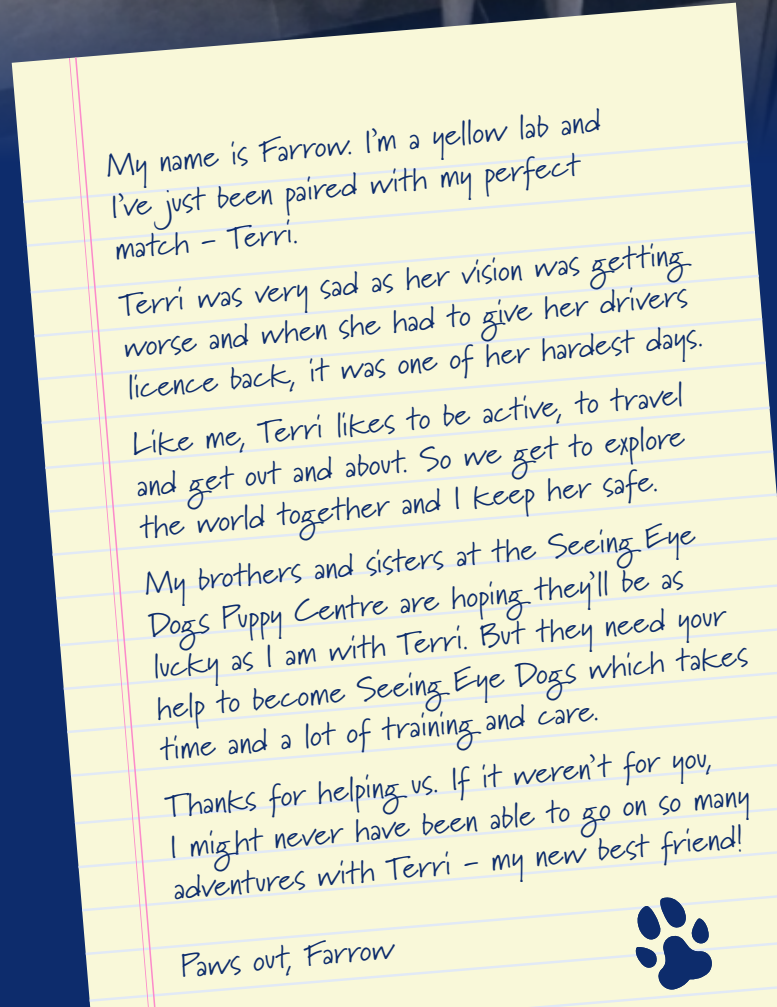 My name is Farrow. I'm a yellow lab and
I've just been paired with my perfect
match – Terri.
Terri was very sad as her vision was getting
worse and when she had to give her drivers
licence back, it was one of her hardest days.
Like me, Terri likes to be active, to travel
and get out and about. So we get to explore
the world together and I keep her safe.
My brothers and sisters at the Seeing Eye
Dogs Puppy Centre are hoping they'll be as
lucky as I am with Terri. But they need your
help to become Seeing Eye Dogs which takes
time and a lot of training and care.
Thanks for helping us. If it weren't for you,
I might never have been able to go on so many
adventures with Terri – my new best friend!
Paws out, Farrow